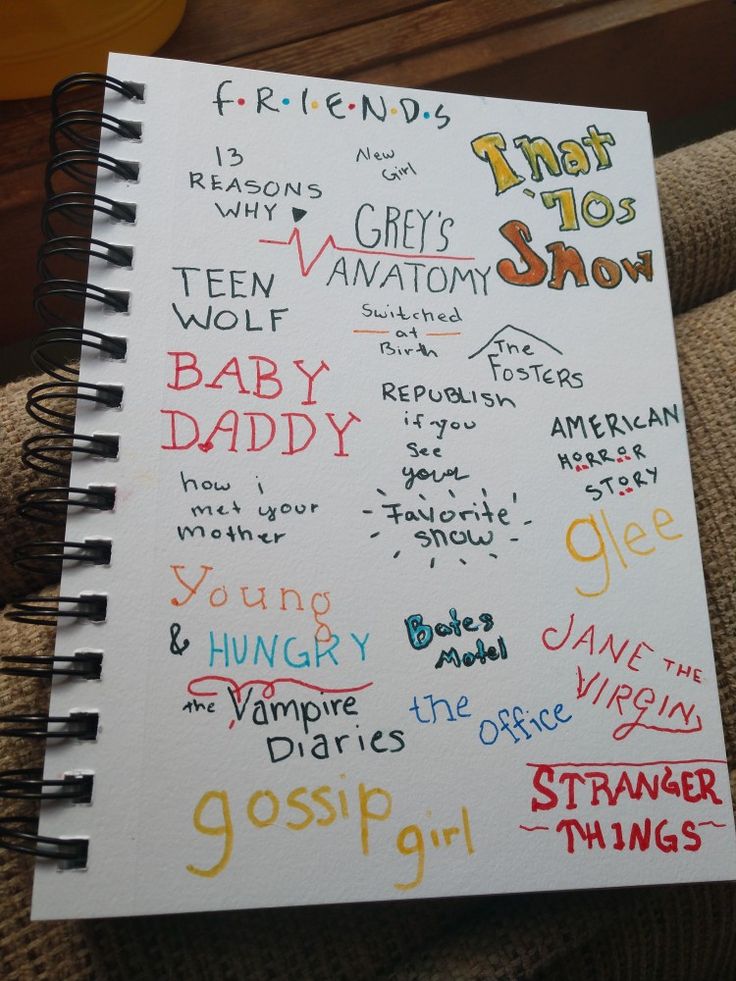 F•R•I•E•N•D•S
13
REASONS
WHY
New
Girl
That
'70s
Show
GREY'S
ANATOMY
TEEN
WOLF
Switched
at
Birth
The
FOSTERS
BABY
DADDY
REPUBLISH
if you
see
your
Favorite
show
AMERICAN
HORROR
STORY
how i
met your
mother
glee
Young
& HUNGRY
Bates
Motel
JANE THE
VIRGIN
the Vampire
Diaries
the office
gossip
girl
STRANGER
THINGS